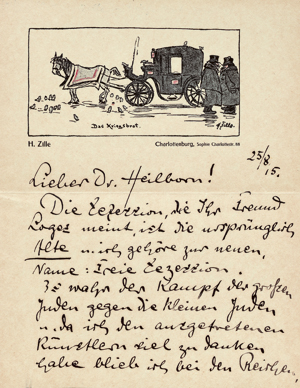 Das Kriegsbrot.
H. Zille.
H. Zille Charlottenburg, Sophie Charlottestr. 88
25/8 15.
Lieber Dr. Heilborn!
Die Sezession, die Ihr Freund
Loges meint, ist die ursprünglich
Alte u. ich gehöre zur neuen,
Name: Freie Sezession.
Es wahr der Kampf der großen
Juden gegen die kleinen Juden
u. da ich den ausgetretenen
Künstlern viel zu danken
habe blieb ich bei den Reichen